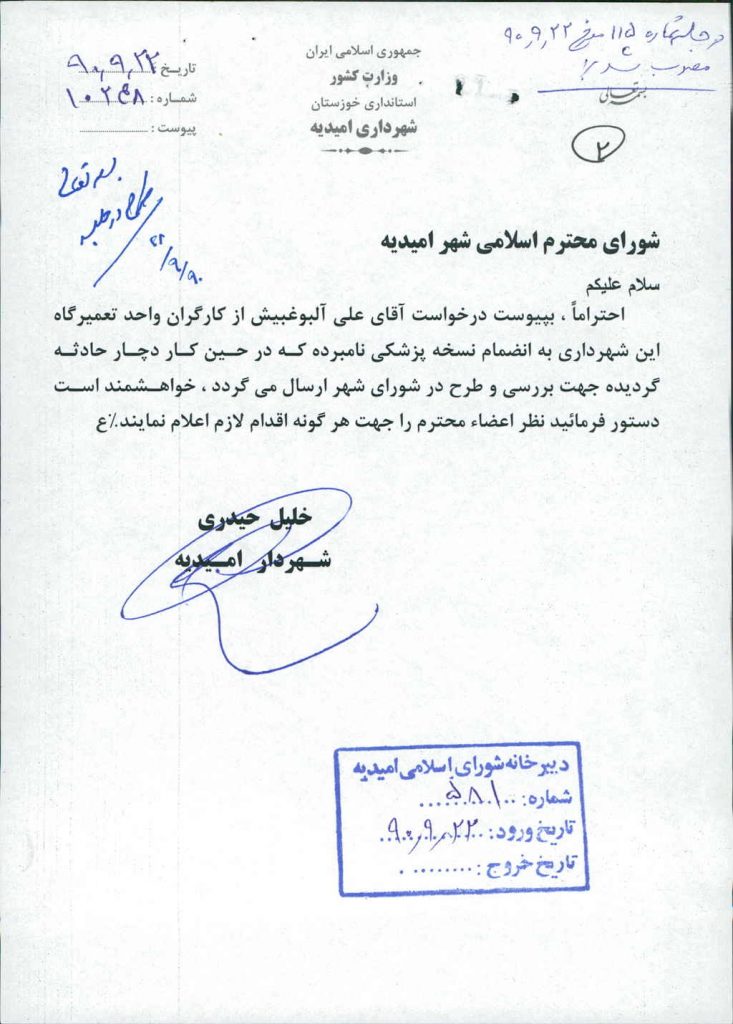 در جلسه شماره ۱۱۵ مورخ ۹۰,۹,۲۲
مصوب شد
بسمه تعالی
۲
جمهوری اسلامی ایران
وزارت کشور
استانداری خوزستان
شهرداری امیدیه
تاریخ: ۹۰,۹,۲۲
شماره:
پیوست:
بسمه تعالی
۹۰/۹/۲۲
شورای محترم اسلامی شهر امیدیه
سلام علیکم
احتراماً ، بپیوست درخواست آقای علی آلبوغبیش از کارگران واحد تعمیرگاه
این شهرداری به انضمام نسخه پزشکی نامبرده که در حین کار دچار حادثه
گردیده جهت بررسی و طرح در شورای شهر ارسال می گردد ، خواهشمند است
دستور فرمائید نظر اعضاء محترم را جهت هر گونه اقدام لازم اعلام نمایند.٪ع
خلیل حیدری
شهردار امیدیه
دبیرخانه شورای اسلامی امیدیه
شماره: ۵۸۱
تاریخ ورود: ۹۰,۹,۲۲
تاریخ خروج: